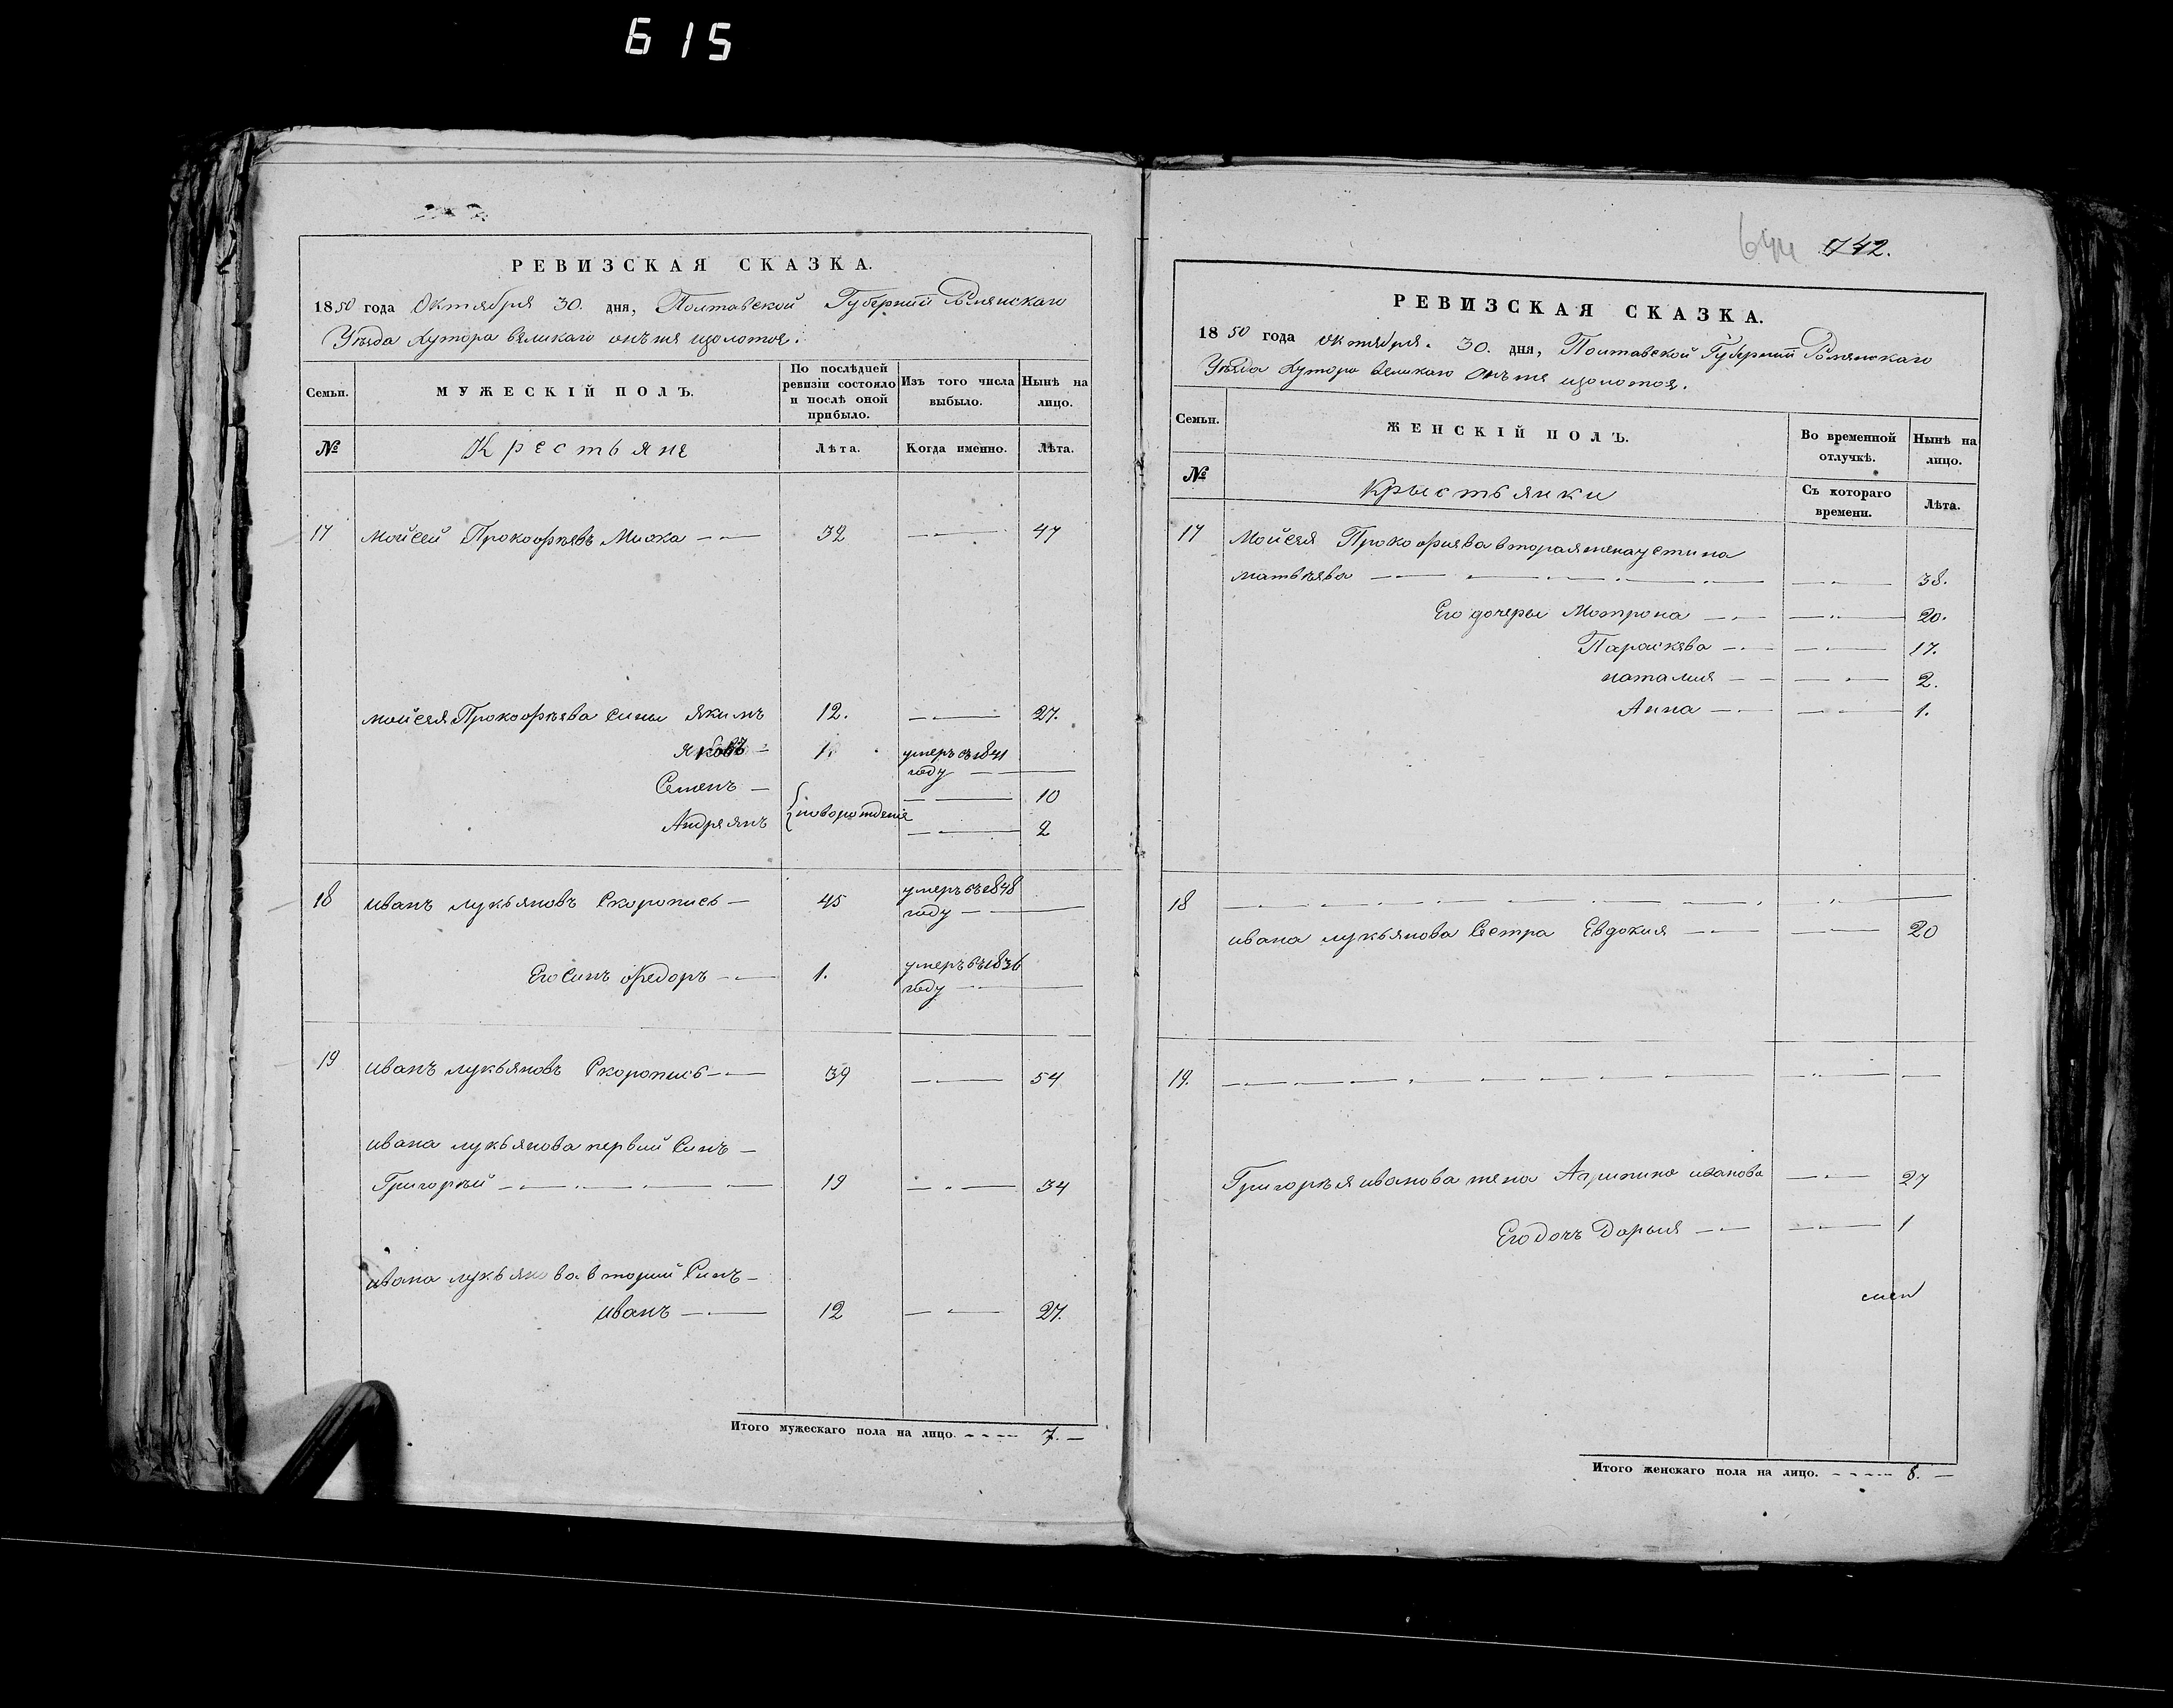 615
РЕВИЗСКАЯ СКАЗКА.
1850 года Октября 30. дня, Полтавской Губернии Роменскаго
Уезда Хутора великаго
Семьи.
МУЖЕСКІЙ ПОЛЪ.
По послѣдней ревизіи состояло и послѣ оной прибыло.
Изъ того числа выбыло.
Нынѣ на лицо.
№
Крестьяне
Лѣта.
Когда именно.
Лѣта.
17 Мойсей Прокофѣевъ 32 47
Мойсея Прокофѣева сины Якимъ 12. 27.
Яковъ 1. умеръ въ 1841
году
Семенъ 10
новорожденіе
Андреянъ 2
18 Иванъ Лукьяновъ Скоропись 45 умеръ въ 1848
году
Его Синъ Федоръ 1. умеръ въ 1836
году
19 Иванъ Лукьяновъ Скоропись 39 54
Ивана Лукьянова первий Синъ
Григорѣй 19 34
Ивана Лукьянова вторий Синъ
Иванъ 12 27.
Итого мужескаго пола на лицо. 7.
742.
РЕВИЗСКАЯ СКАЗКА.
1850 года октября. 30. дня, Полтавской Губернии Роменскаго
Уезда Хутора великаго
Семьи.
ЖЕНСКІЙ ПОЛЪ.
Во временной отлучкѣ.
Нынѣ на лицо.
№
Крыстьянки
Съ котораго времени.
Лѣта.
17 Мойсея Прокофиева вторая жена устина
матвѣева 38.
Его дочеры Мотрона 20.
Параскева 17.
наталия 2.
Анна 1.
18
ивана лукьянова Сестра Евдокия 20
19.
Григорѣя иванова жена Агрипина иванова 27
Его дочъ Дарыя 1
Итого женскаго пола на лицо. 8.